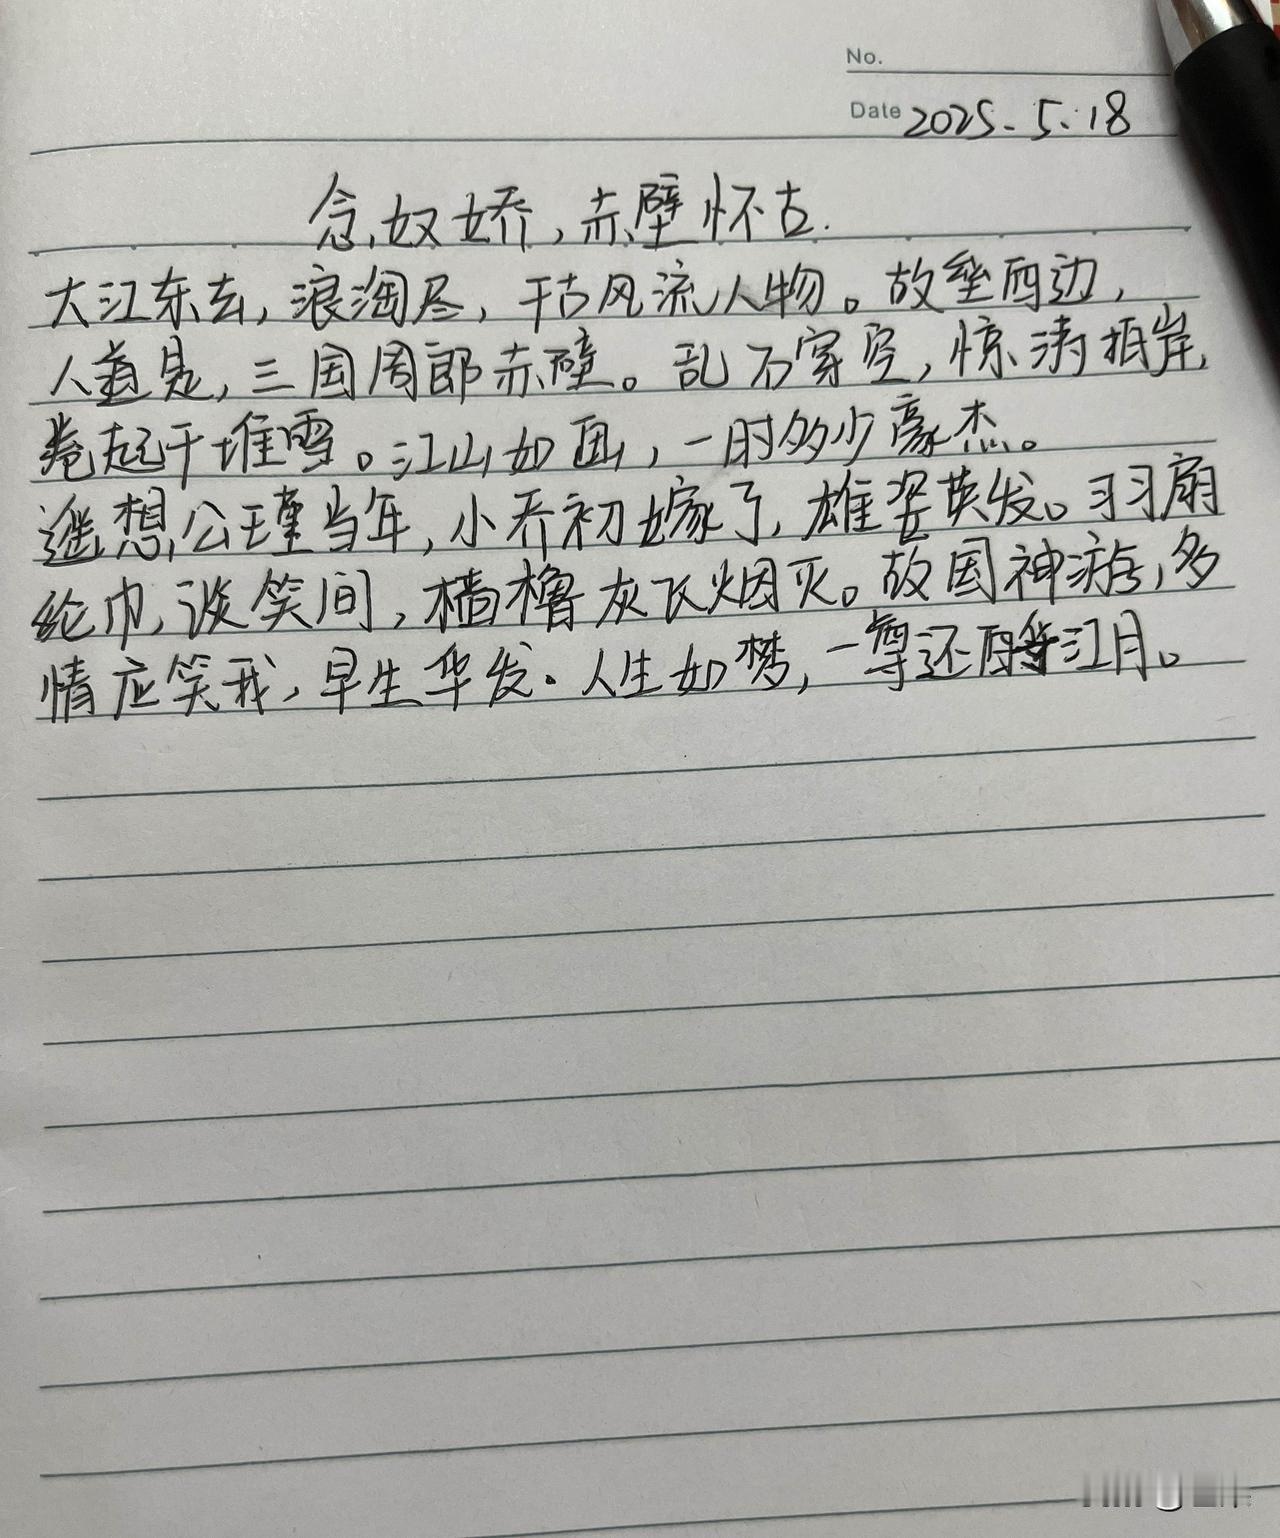 No.
Date 2025.5.18
念奴娇,赤壁怀古.
大江东去,浪淘尽,千古风流人物。故垒西边,
人道是,三国周郎赤壁。乱石穿空,惊涛拍岸,
卷起千堆雪。江山如画,一时多少豪杰。
遥想公瑾当年,小乔初嫁了,雄姿英发。羽扇
纶巾,谈笑间,樯橹灰飞烟灭。故国神游,多
情应笑我,早生华发.人生如梦,一尊还酹江月。